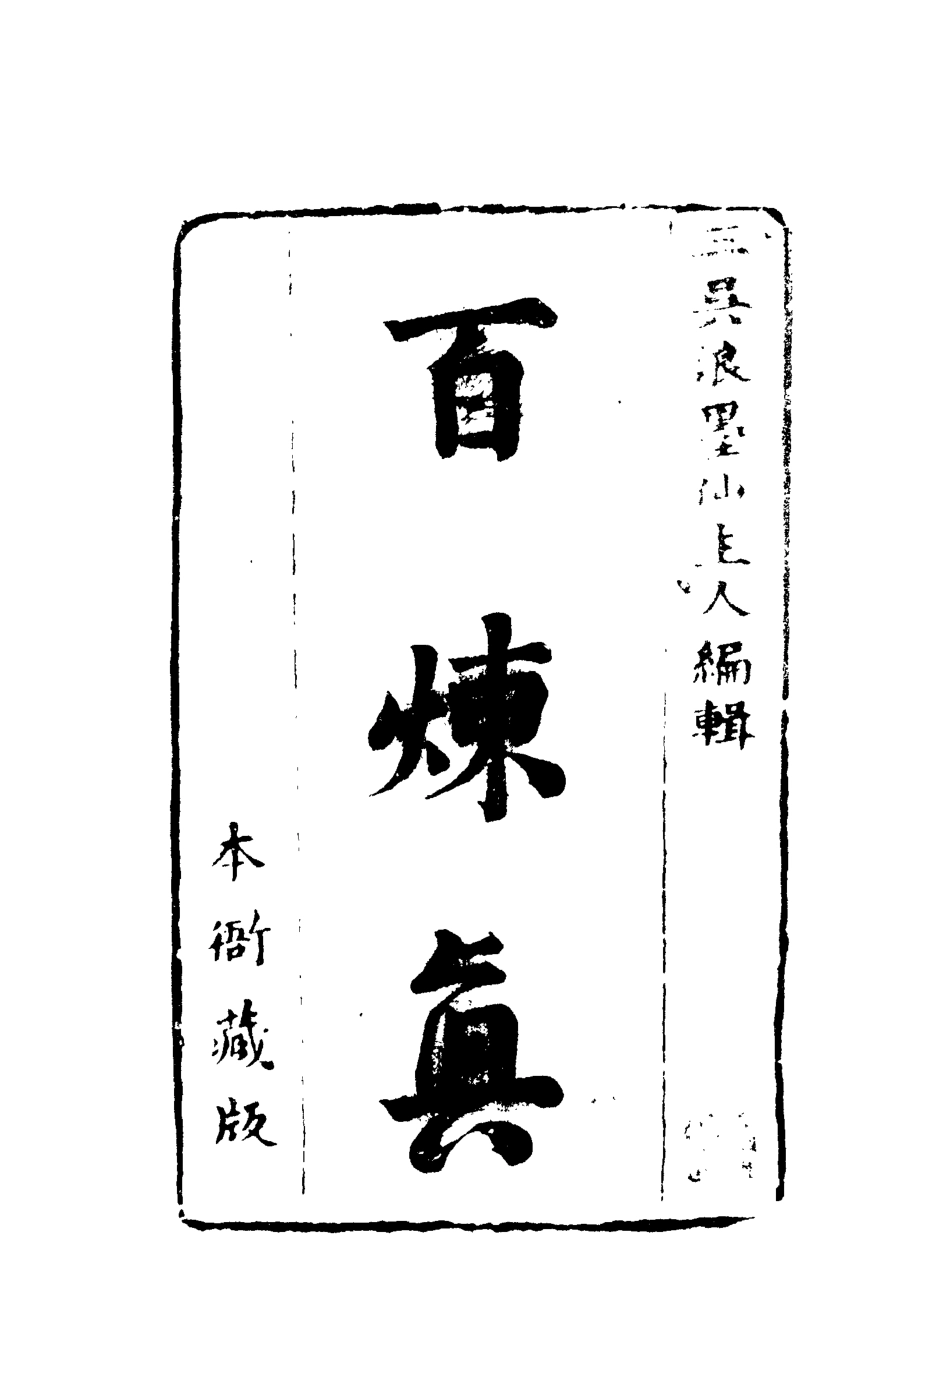 三吳浪墨仙主人編輯
百煉眞
本衙藏版